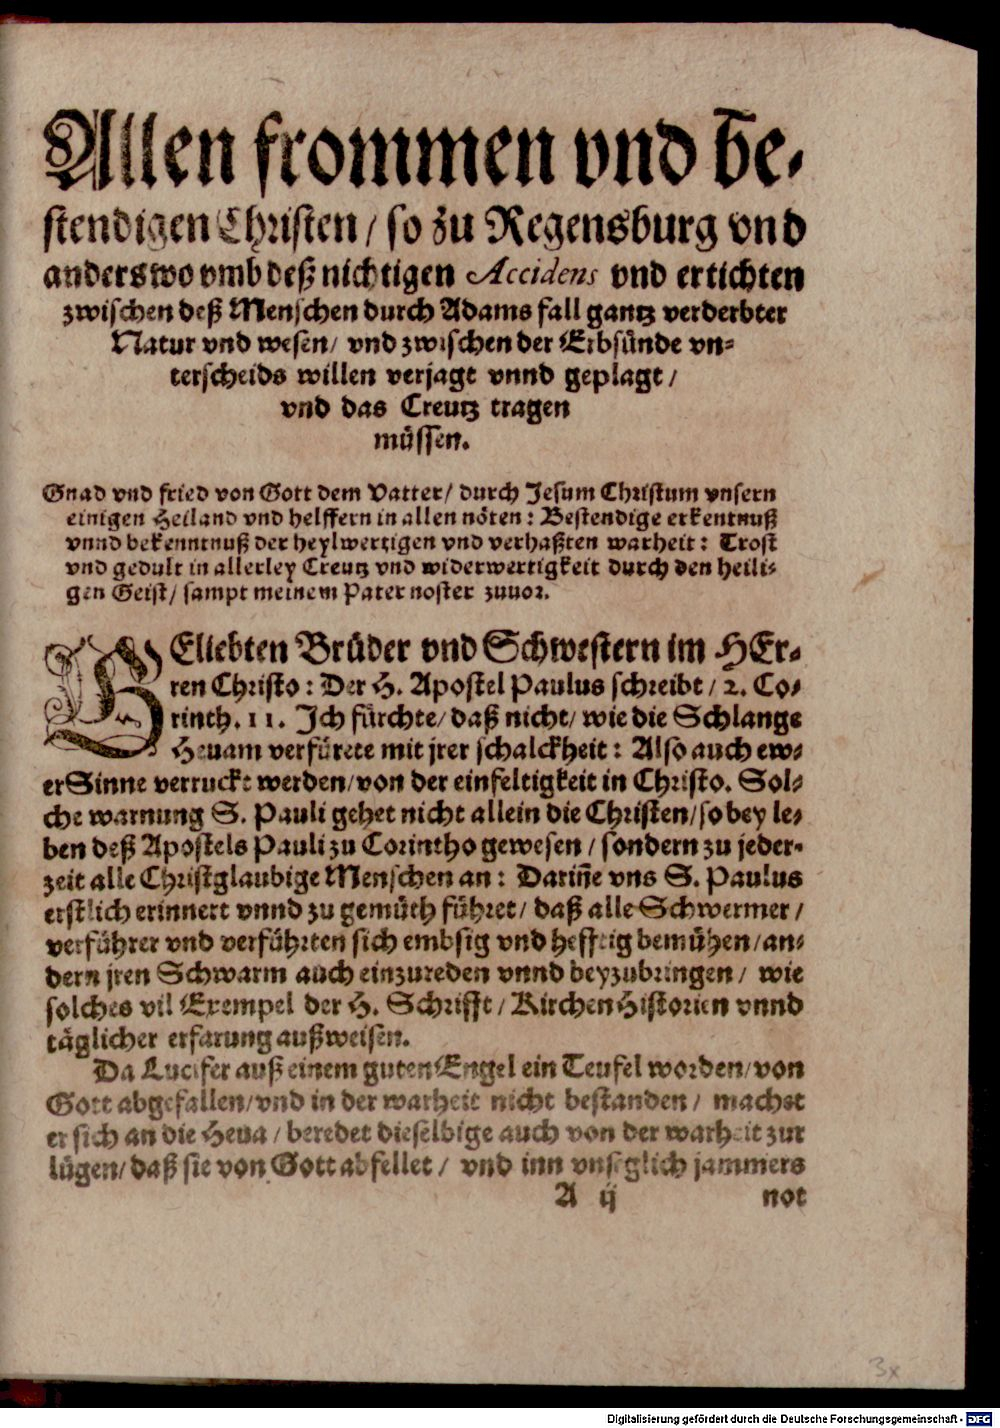 Allen frommen vnd be-
stendigen Christen / so zu Regensburg vnd
anderswo vmb deß nichtigen Accidens vnd ertichten
zwischen deß Menschen durch Adams fall gantz verderbter
Natur vnd wesen / vnd zwischen der Erbsünde vn-
terscheids willen verjagt vnnd geplagt /
vnd das Creutz tragen
müssen.
Gnad vnd fried von Gott dem Vatter / durch Jesum Christum vnsern
einigen Heiland vnd helffern in allen nöten : Bestendige erkentnuß
vnnd bekenntnuß der heylwertigen vnd verhaßten warheit : Trost
vnd gedult in allerley Creutz vnd widerwertigkeit durch den heili-
gen Geist / sampt meinem Pater noster zuuor.
GEliebten Brüder vnd Schwestern im HEr-
ren Christo : Der H. Apostel Paulus schreibt / 2. Co-
rinth. 11. Jch fürchte / daß nicht / wie die Schlange
Heuam verfürete mit jrer schalckheit : Also auch ew-
er Sinne verruckt werden / von der einfeltigkeit in Christo. Sol-
che warnung S. Pauli gehet nicht allein die Christen / so bey le-
ben deß Apostels Pauli zu Corintho gewesen / sondern zu jeder-
zeit alle Christglaubige Menschen an : Dariñe vns S. Paulus
erstlich erinnert vnnd zu gemüth führet / daß alle Schwermer /
verführer vnd verführten sich embsig vnd hefftig bemühen / an-
dern jren Schwarm auch einzureden vnnd beyzubringen / wie
solches vil Exempel der H. Schrifft / Kirchen Historien vnnd
täglicher erfarung außweisen.
Da Lucifer auß einem guten Engel ein Teufel worden / von
Gott abgefallen / vnd in der warheit nicht bestanden / machet
er sich an die Heua / beredet dieselbige auch von der warheit zur
lügen / daß sie von Gott abfellet / vnd inn vnseglich jammers
A ij not
3x
Digitalisierung gefördert durch die Deutsche Forschungsgemeinschaft - DFG